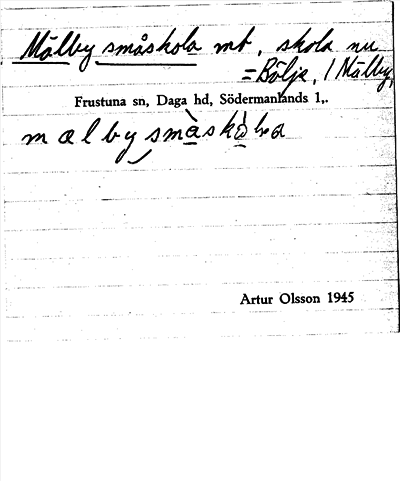 Mälby småskola mt, skola nu
= Bölja, / Mälby,
Frustuna sn, Daga hd, Södermanlands l,.
mælby småskòla
Artur Olsson 1945